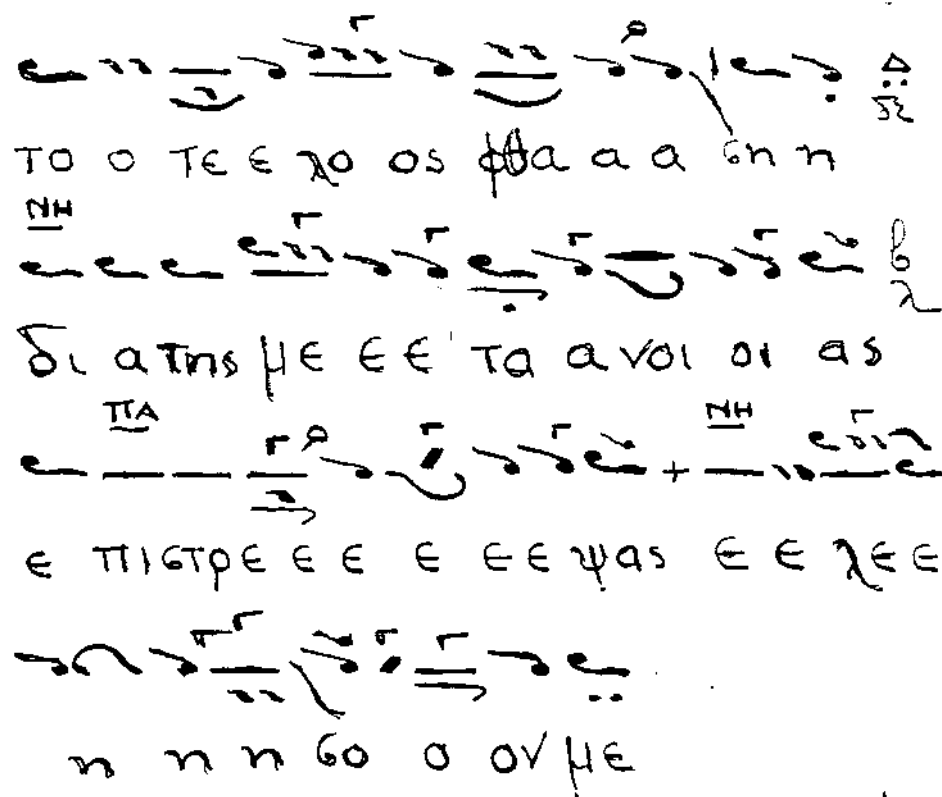 Δ
το ο τε ε λο ος φθα α α ση η
ΝΗ
δι α της με ε ε τα α νοι οι ας
ΠΑ ΝΗ
ε πιστρε ε ε ε ε ε ψας ε ε λε ε
η η η σο ο ον με